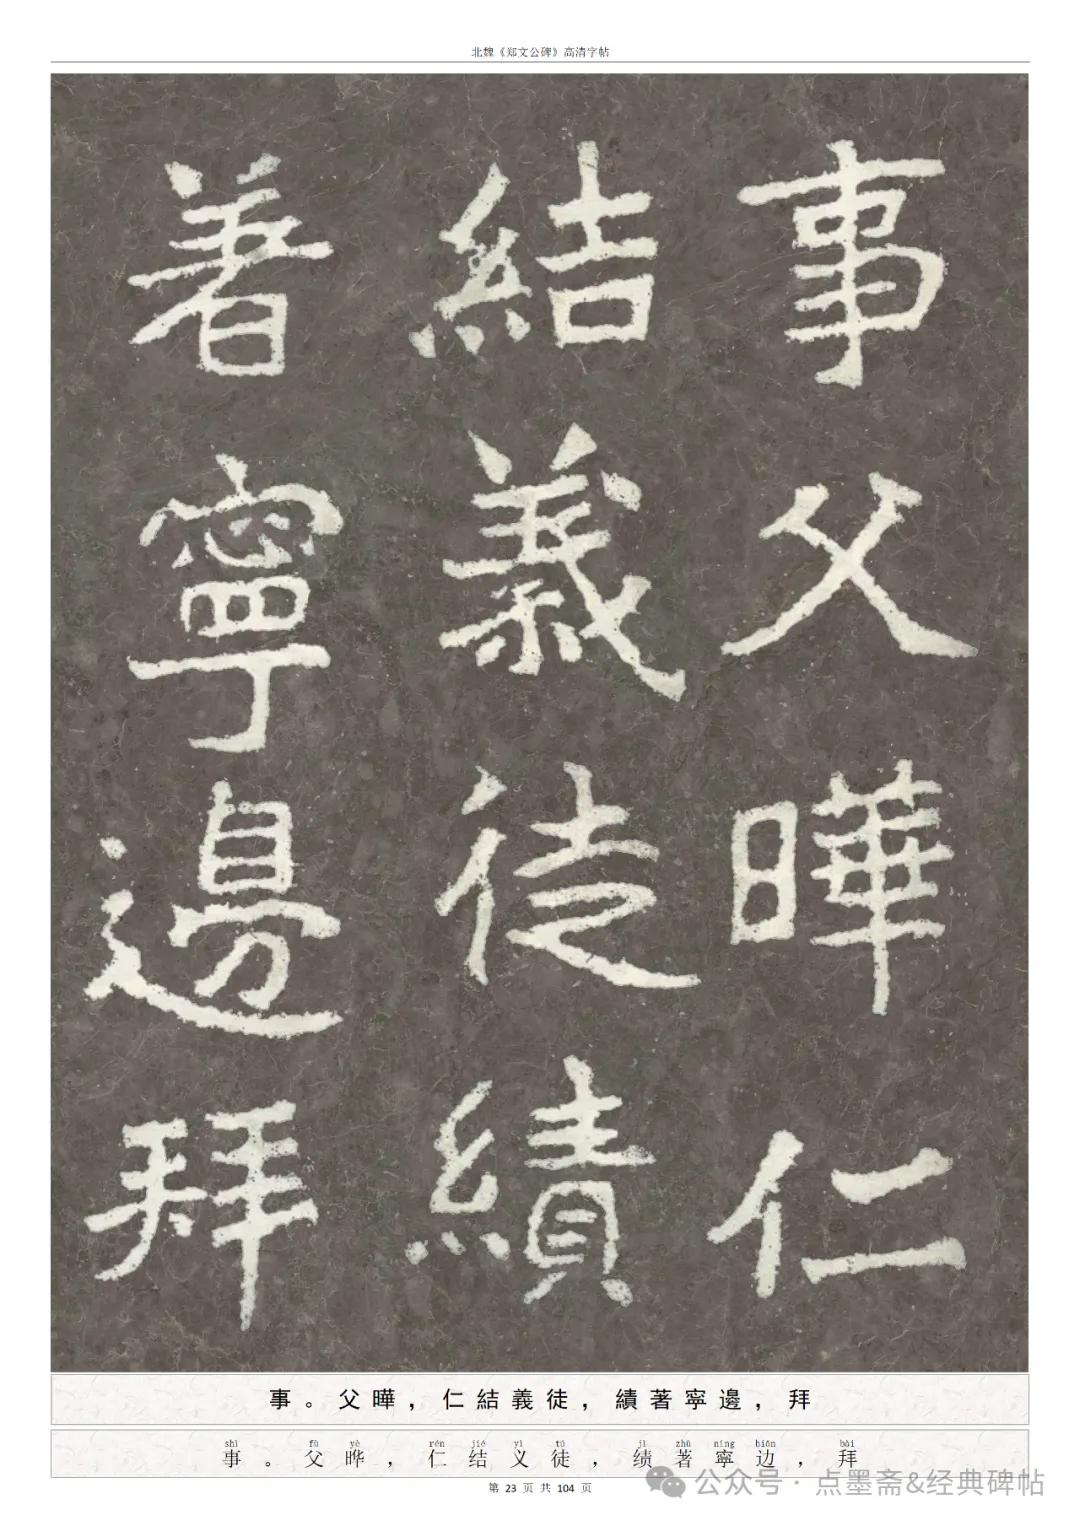 北魏《郑文公碑》高清字帖
事父曄仁
結義徒績
著寧邊拜
事。父曄，仁結義徒，績著寧邊，拜
shì fù yè rén jié yì tú jì zhù níng biān bài
事。父晔，仁结义徒，绩著寧边，拜
公众号 · 点墨斋&经典碑帖
第 23 页 共 104 页